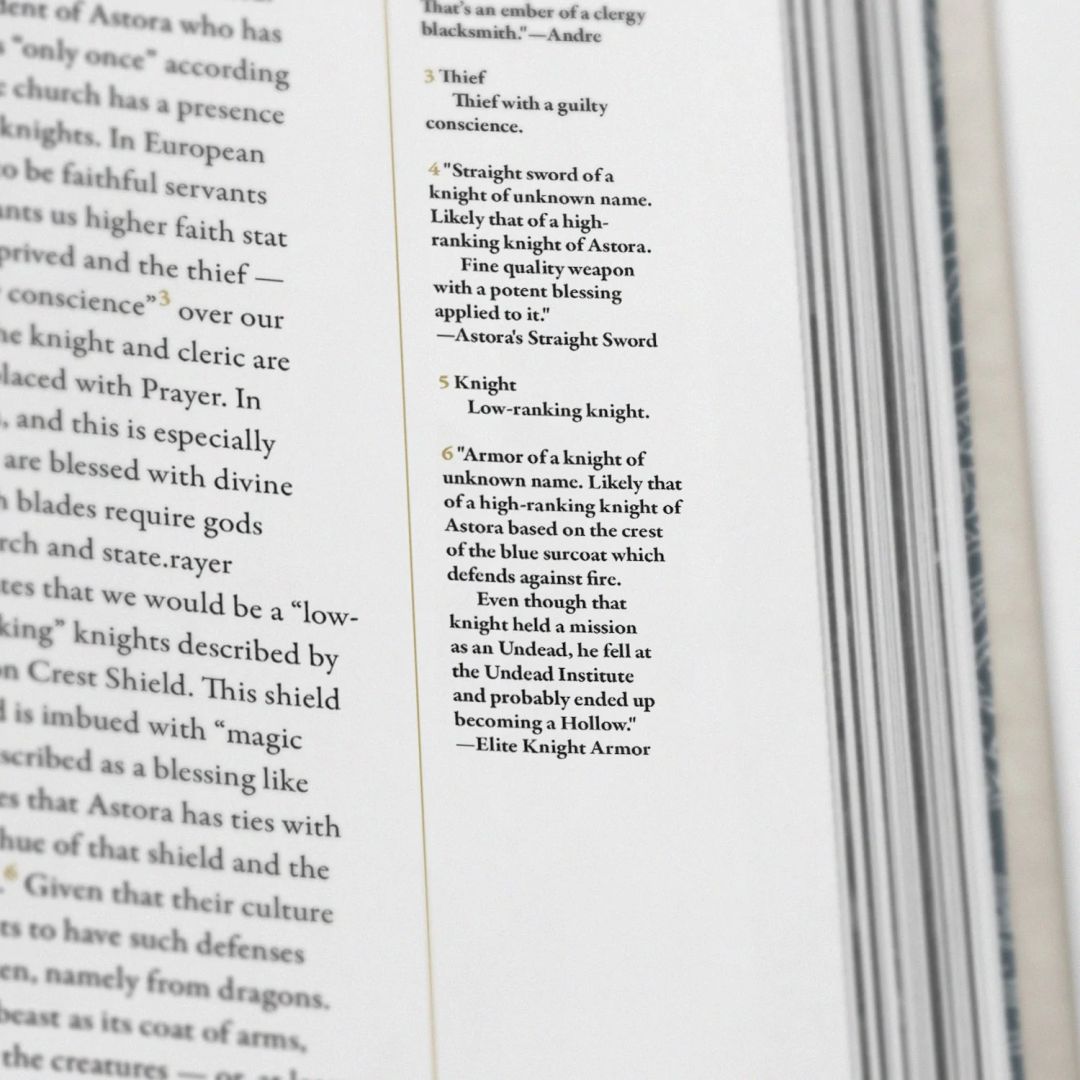 ent of Astora who has
"only once" according
church has a presence
knights. In European
o be faithful servants
ants us higher faith stat
prived and the thief —
conscience”3 over our
he knight and cleric are
laced with Prayer. In
, and this is especially
are blessed with divine
blades require gods
rch and state.rayer
tes that we would be a “low-
king” knights described by
on Crest Shield. This shield
is imbued with “magic
scribed as a blessing like
es that Astora has ties with
hue of that shield and the
.6 Given that their culture
ts to have such defenses
en, namely from dragons.
beast as its coat of arms,
the creatures — or
That's an ember of a clergy
blacksmith."—Andre
3 Thief
Thief with a guilty
conscience.
4 "Straight sword of a
knight of unknown name.
Likely that of a high-
ranking knight of Astora.
Fine quality weapon
with a potent blessing
applied to it."
—Astora's Straight Sword
5 Knight
Low-ranking knight.
6 "Armor of a knight of
unknown name. Likely that
of a high-ranking knight of
Astora based on the crest
of the blue surcoat which
defends against fire.
Even though that
knight held a mission
as an Undead, he fell at
the Undead Institute
and probably ended up
becoming a Hollow."
—Elite Knight Armor